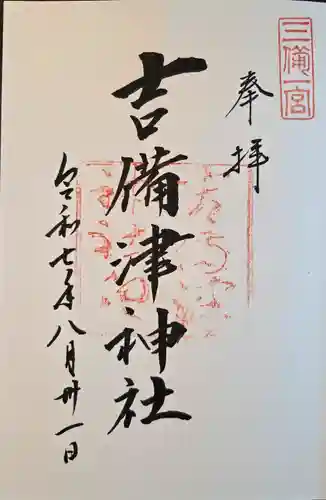 三備一宮
奉拝
吉備津神社
令和七年八月卅一日